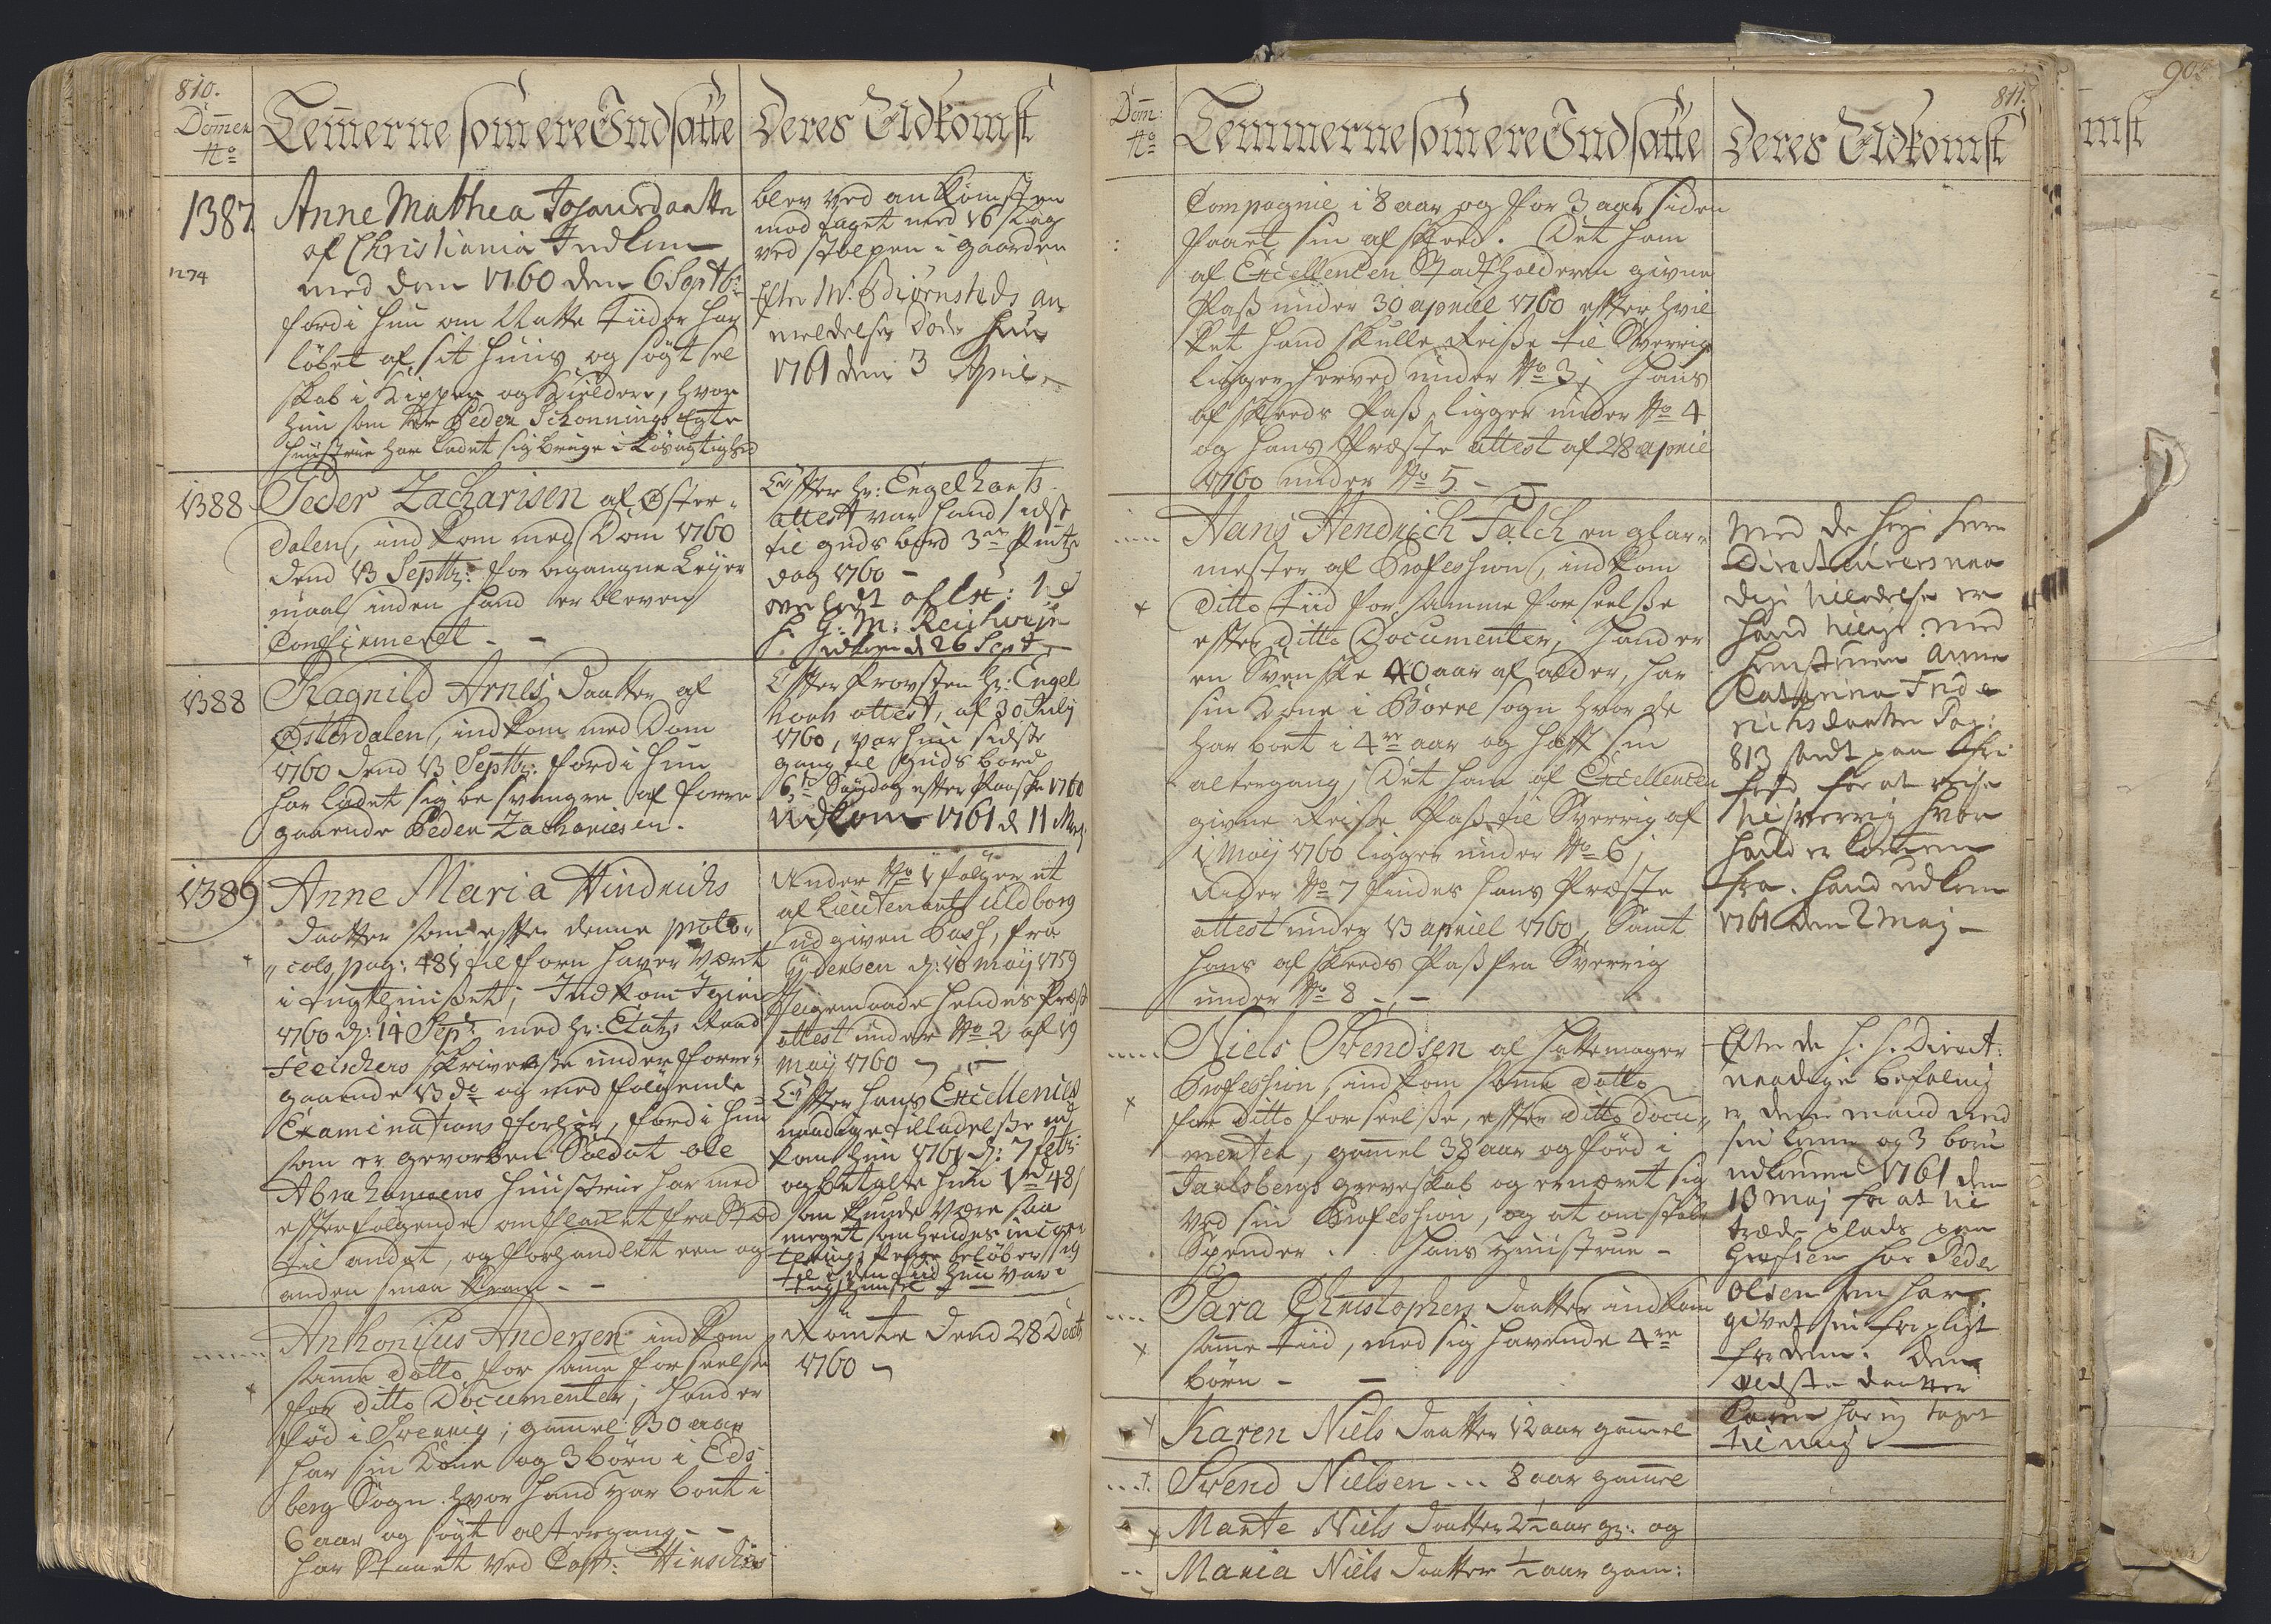 810.
Dom̅er
No
Lem̅erne som ere Indsatte
Deres Udkomst
1387
1274
Anne Mathea
af Christiania Indkom
med dom 1760 den 6 Septbr:
fordi hun om Natte tiider har
löbet af sit huus og sögt sel
skab i Kipper og Kieldere, hvor
hun som Peder Schonnings Egte
hustrue har ladet sig bruge i Lösagtighed
blev ved ankomsten
mod taget med 16 Slag
ved stolpen i gaarden
Efter Mr. Biörnsteds an
meldelse döde hun
1761 den 3 April
1388
Peder Zacharisen af Øster-
dalen, indkom med Dom 1760
dend 13 Septbr: for begangne Leyer
maal, inden hand er bleven
Confirmeret - -
Effter Hr: Engelharts
attest var hand sidst
til guds bord 3de Pintze
dag 1760 -
d 26 Sept
1388
Ragnild Arnes daatter af
Østerdalen, indkom med Dom
1760 dend 13 Septbr: fordi hun
har ladet sig besvangre af forre
gaaende Peder Zachariesen.
Effter Provsten Hr: Engel
harts attest, af 30 July
1760, var hun sidste
gang til guds bord
6te Söndag effter Paaske 1760
Udkom 1761 d 11 Maj.
1389
Anne Maria Hindrichs
daatter som efter denne proto-
cols, pag: 481 tilforn haver Været
i tugthuuset; Indkom Igien
1760 d: 14 Sept: med Hr: Etatz Raad
Fleischers skrivelse under forre-
gaaende 13 do og med fölgende
Examinations forhör, fordi hun
som er gevorben Soldat ole
Abrahamsens hustrue har med
effterfölgende omflacket fra Sted
til andet, og forhandlet een og
anden smaa Kram - -
Under No 1 fölger et
af Lieutenant Uldborg
udgiven Pass, fra
d: 10 maij 1759
ligemaade hendes Præst
attest under No 2 af 19
maij 1760 -
Effter hans Excellences
naadige tilladelse ud
kom hun 1761 d: 7 febr:
og betalte hun 1 rd 48 s
som kunde Være saa
meget som hendes
penge belöber sig
til i den tiid hun var i
tugthuuset
Anthonius Andersen indkom
sam̅e datto for sam̅e forseelse
for ditto Documenter; hand er
föd i Sverrig; gam̅el 30 aar
har sin Kone og 3 börn i Eds
berg Sogn hvor hand har boet i
6 aar og sögt altergang - -
har Staaet ved Capt: Hinschius
Römte dend 28 Decbr
1760
811.
Dom̅:
No
Lemmerne som ere Indsatte
Deres Udkomst
Compagnie i 8 aar og for 3 aar siden
faaet sin afskeed. Det ham
af Excellencen Stadtholderen givne
Pass under 30 apriil 1760 effter hvil
ket hand skulle Reise til Sverrig
ligger herved under No 3; hans
afskeeds Pass, ligger under No 4
og hans Præste attest af 28 apriil
1760 under No 5 - -
Hans Hendrich Falch en glar-
mester af Profession, indkom
ditto tiid for samme forseelse
effter ditto Documenter; hand er
en Svenske 40 aar af alder, har
sin Kone i Borre sogn hvor de
har boet i 4re aar og havt sin
altergang; Det ham af Excellencen
givne Reise Pass til Sverrig af
1 Maij 1760 ligger under No 6;
Under No 7 findes hans Præste
attest under 13 apriil 1760, Samt
hans afskeeds Pass fra Sverrig
under No 8 - -
Med de höye herre
Directeurers naa
dige tilladelse er
hand tilligemed
hustruen Anne
Cathrina
daatter Pag:
813 sadt paa frie
fod for at reise
til Sverrig hvor
hand er kommen
fra. hand udkom
1761 den 2 Maj -
Niels Svendsen af Hattemager
Profession, indkom sam̅e datto
for ditto forseelse, effter ditto docu-
menter, gam̅el 38 aar og föd i
Jarlsbergs greveskab og ernæret sig
ved sin Profession, og at omflaae
Spender. hans hustrue -
Efter de H. H. Direct:
naadige befaling
er denne mand med
sin kone og 3 börn
udkommen 1761 den
13 Maj for at til
træde plads paa
hos Peder
Olsen som har
givet sin forpligt
for dem. den
ældste datter
Karen har jeg taget
til mig
Sara Christophers daatter indkom
sam̅e tiid, med sig havende 4re
börn - -
Karen Niels daatter 12 aar gam̅el
Svend Nielsen --- 8 aar gam̅el
Marte Niels daatter 2½ aar g: og
Maria Niels daatter ½ aar gam:
90
mst